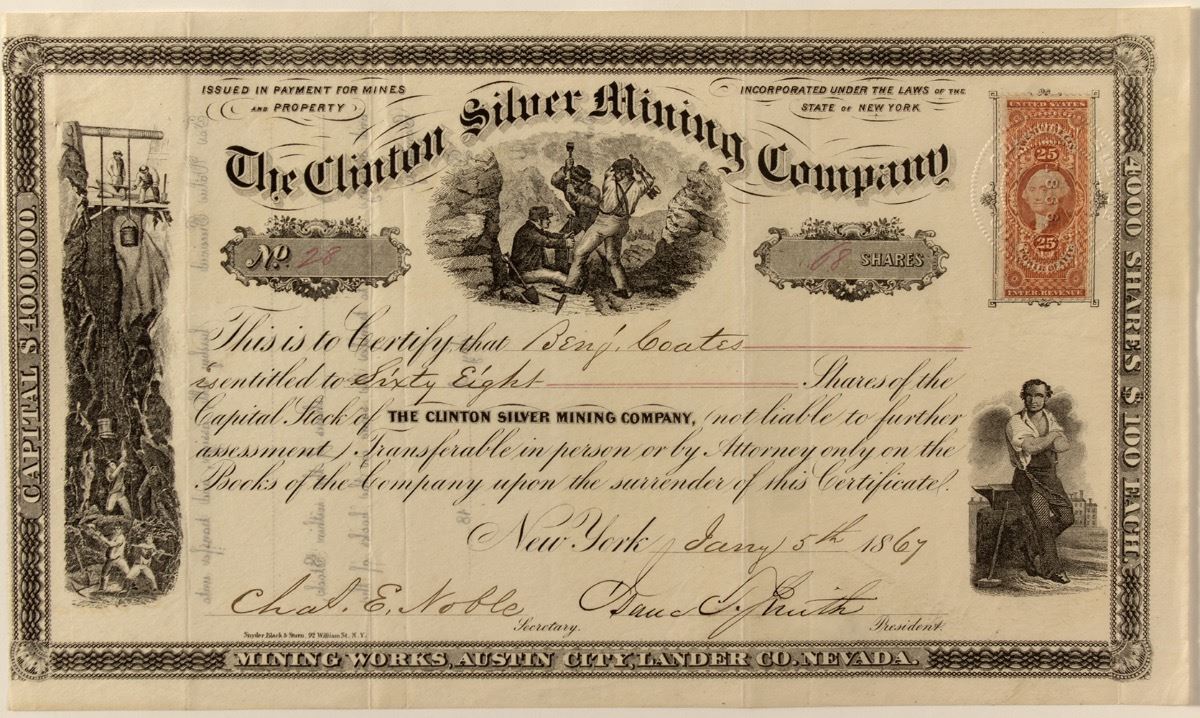 ISSUED IN PAYMENT FOR MINES
AND PROPERTY
INCORPORATED UNDER THE LAWS OF THE
STATE OF NEW YORK
The Clinton Silver Mining Company
No. 28
68 SHARES
UNITED STATES
25
25
POWER OF ATT'Y
INTER. REVENUE
This is to Certify, that Benj. Coates
is entitled to Sixty Eight Shares of the
Capital Stock of THE CLINTON SILVER MINING COMPANY, (not liable to further
assessment) Transferable in person or by Attorney only on the
Books of the Company upon the surrender of this Certificate.
New York Jany 5th 1867
Chas. E. Noble
Secretary.
Smith
President.
Snyder Black & Sturn, 92 William St. N.Y.
CAPITAL $400,000.
4000 SHARES $100 EACH.
MINING WORKS, AUSTIN CITY, LANDER CO. NEVADA.